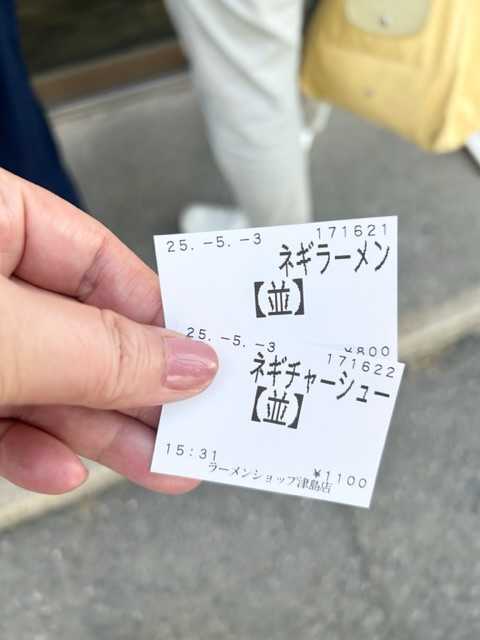 25.-5.-3 171621
ネギラーメン
【並】
¥800
25.-5.-3 171622
ネギチャーシュー
【並】
15:31 ¥1100
ラーメンショップ津島店